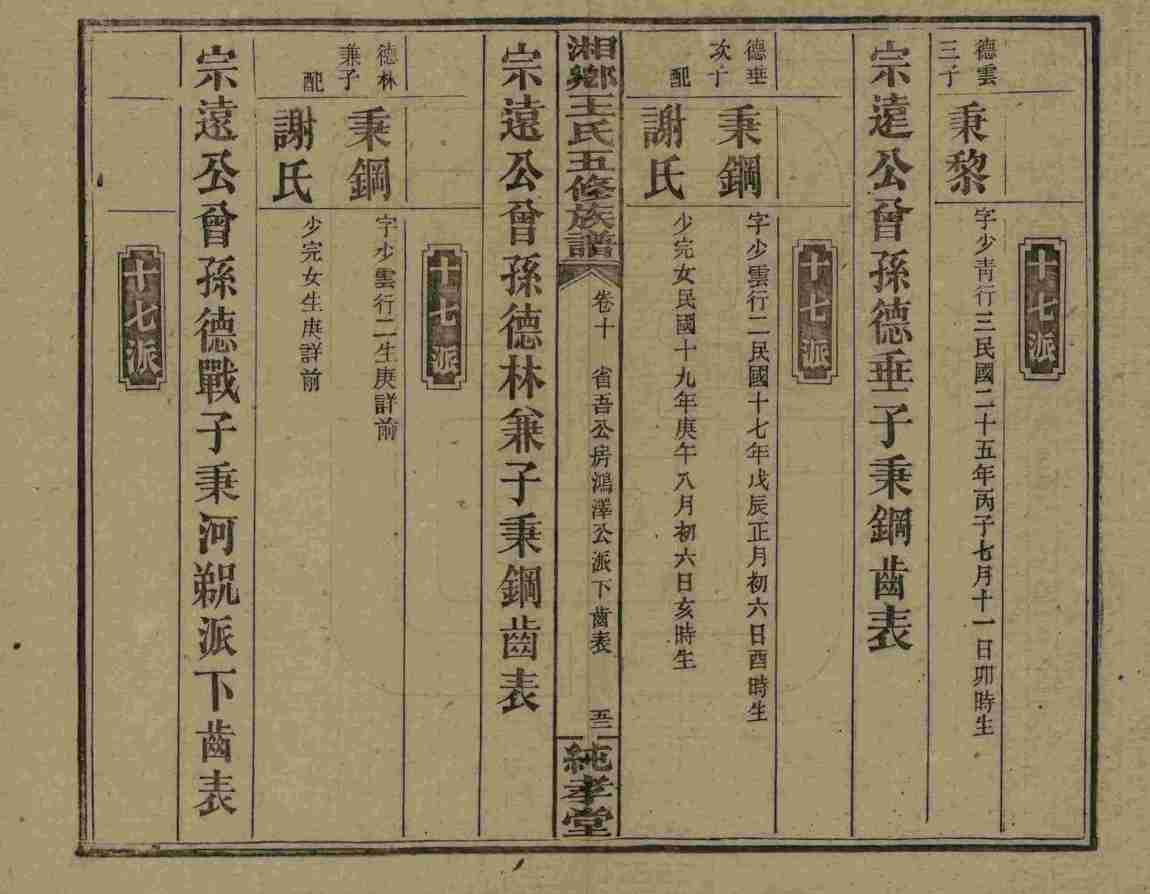 十七派
德雲
三子
秉黎
字少青行三民國二十五年丙子七月十一日卯時生
宗遠公曾孫德垂子秉鋼齒表
十七派
德垂
次子
秉鋼
字少雲行二民國十七年戊辰正月初六日酉時生
配
謝氏
少完女民國十九年庚午八月初六日亥時生
湘鄉王氏五修族譜
卷十
省吾公房鴻澤公派下齒表
五二
純孝堂
宗遠公曾孫德林兼子秉鋼齒表
十七派
德林
兼子
秉鋼
字少雲行二生庚詳前
配
謝氏
少完女生庚詳前
宗遠公曾孫德戰子秉河
派下齒表
十七派